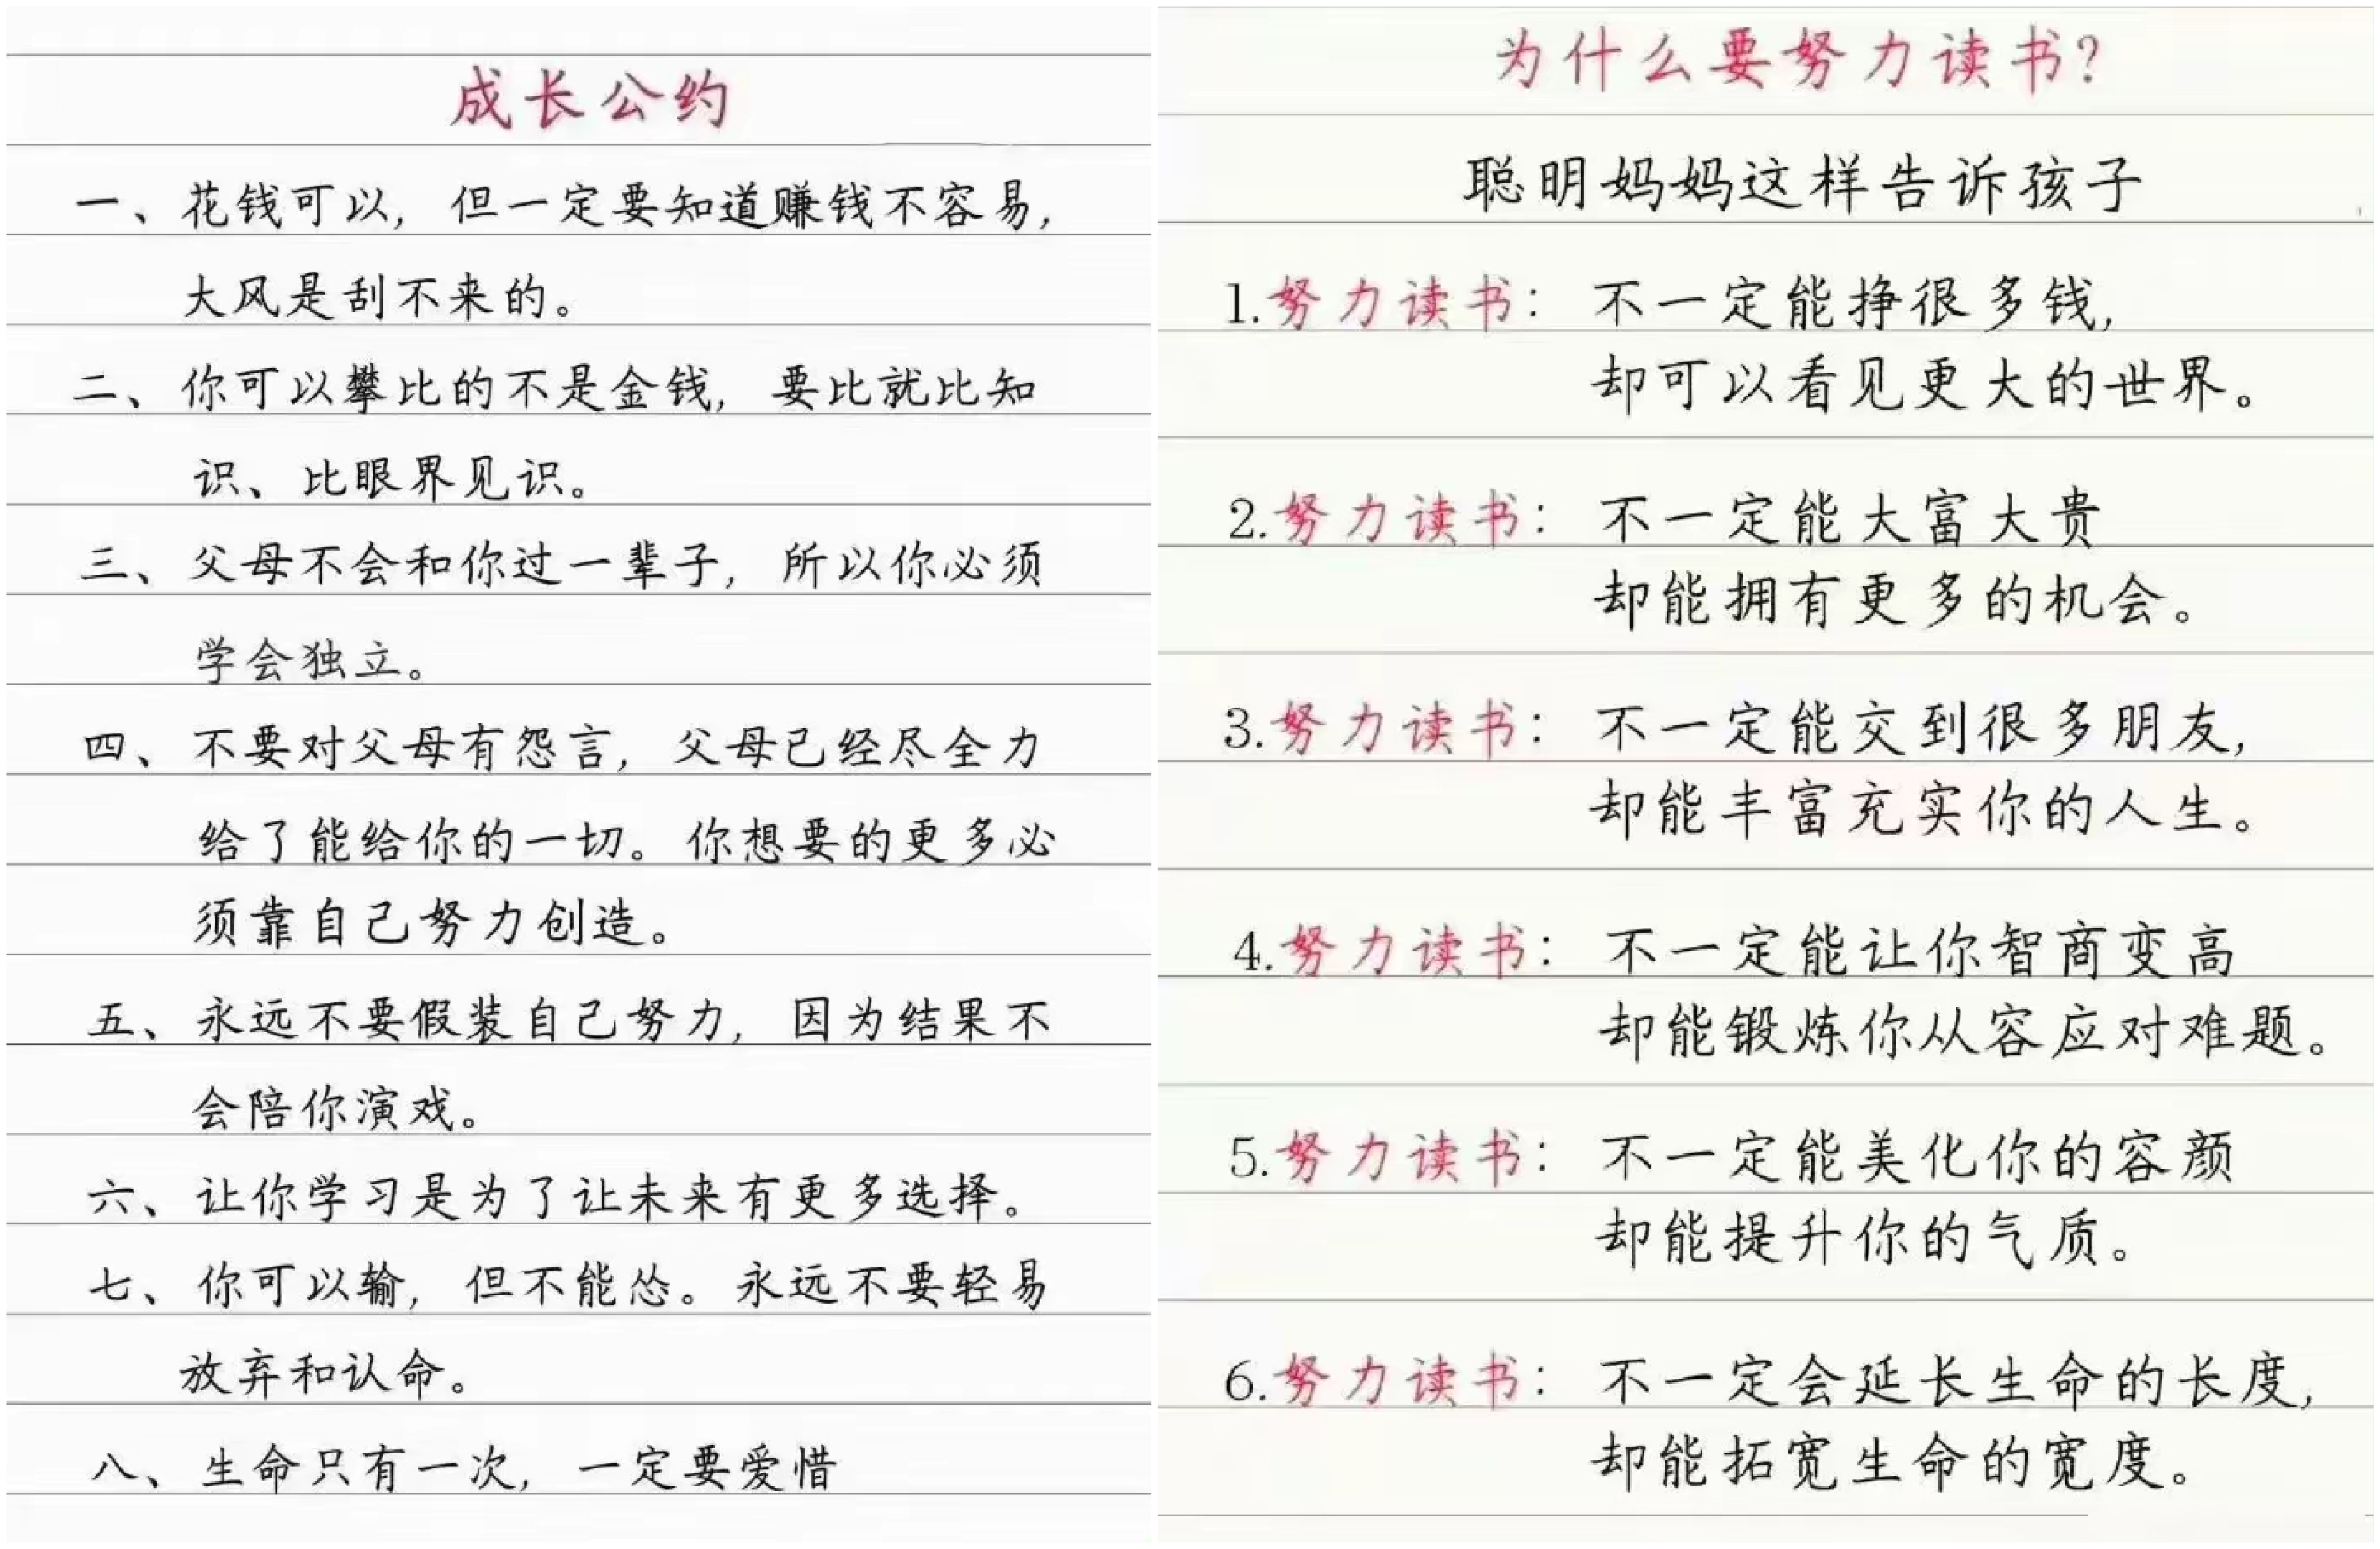 成长公约
一、花钱可以，但一定要知道赚钱不容易，
大风是刮不来的。
二、你可以攀比的不是金钱，要比就比知
识、比眼界见识。
三、父母不会和你过一辈子，所以你必须
学会独立。
四、不要对父母有怨言，父母已经尽全力
给了能给你的一切。你想要的更多必
须靠自己努力创造。
五、永远不要假装自己努力，因为结果不
会陪你演戏。
六、让你学习是为了让未来有更多选择。
七、你可以输，但不能怂。永远不要轻易
放弃和认命。
八、生命只有一次，一定要爱惜
为什么要努力读书？
聪明妈妈这样告诉孩子
1.努力读书：不一定能挣很多钱，
却可以看见更大的世界。
2.努力读书：不一定能大富大贵
却能拥有更多的机会。
3.努力读书：不一定能交到很多朋友，
却能丰富充实你的人生。
4.努力读书：不一定能让你智商变高
却能锻炼你从容应对难题。
5.努力读书：不一定能美化你的容颜
却能提升你的气质。
6.努力读书：不一定会延长生命的长度，
却能拓宽生命的宽度。